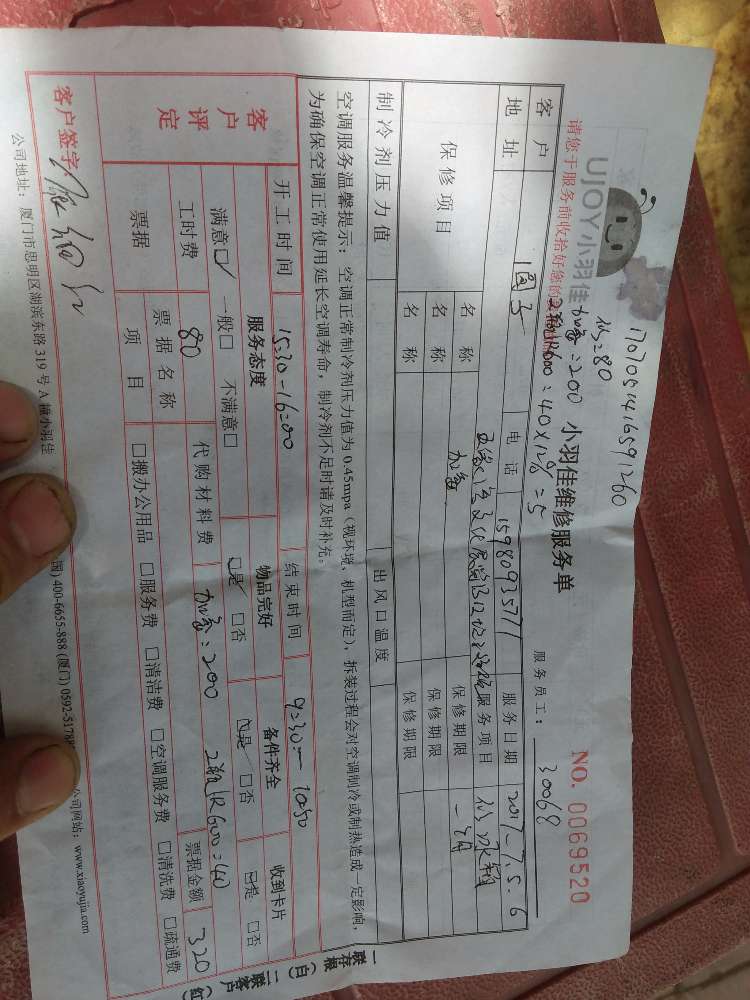 170705416591260
UJOY小羽佳
修=80
加氟=200
小羽佳维修服务单
NO. 0069520
请您于服务前收拾好您的
2瓶R600=40×12%=5
服务员工: 30068
客户
电话 15980935711
服务日期 2017-7.5.6
地址
服务项目 修冰箱
保修项目
名称 加氟 保修期限 一个月
名称 保修期限
名称 保修期限
制冷剂压力值 出风口温度
空调服务温馨提示: 空调正常制冷剂压力值为0.45mpa（视环境，机型而定），拆装过程会对空调制冷或制热造成一定影响，
为确保空调正常使用延长空调寿命，制冷剂不足时请及时补充。
开工时间 15:30-16:00 结束时间 9:30-10:50
客户评定
服务态度 物品完好 备件齐全 收到卡片
满意☑ 一般□ 不满意□ ☑是 □否 ☑是 □否 ☑是 □否
工时费 80 代购材料费 加氟:200 2瓶R600=40 票据金额 320
票据 票据名称
项目 □搬办公用品 □服务费 □清洁费 □空调服务费 □清洗费 □疏通费
客户签字:
公司地址: 厦门市思明区湖滨东路319号A幢小羽佳
国) 400-6655-888 (厦门) 0592-5178
公司网站: www.xiaoyujia.com
一联存根 (白) 二联客户 (红